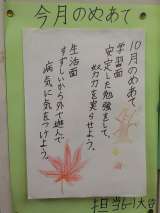 今月のめあて
10月のめあて
学習面
安定した勉強をして、
努力を実らせよう。
生活面
すずしいから外で遊んで
病気に気をつけよう。